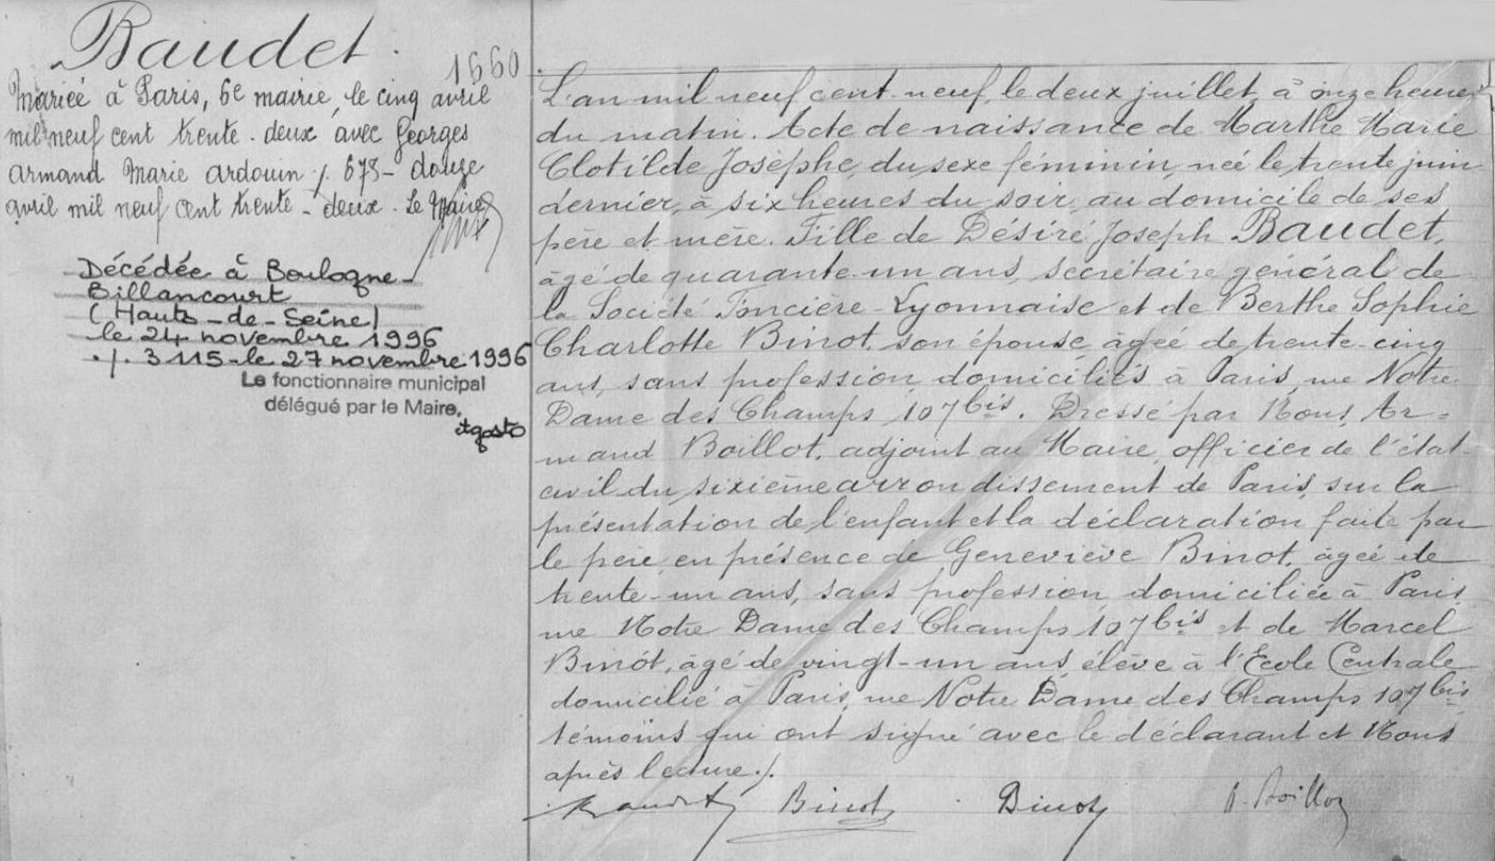 Baudet.
1660
Mariée à Paris, 6e mairie, le cinq avril
mil neuf cent trente-deux avec Georges
Armand Marie Ardouin ./. 673 - douze
avril mil neuf cent trente-deux. Le Maire
Décédée à Boulogne-
Billancourt
(Hauts-de-Seine)
le 24 novembre 1996
./. 3115 - le 27 novembre 1996
Le fonctionnaire municipal
délégué par le Maire,
L'an mil neuf cent neuf, le deux juillet, à onze heures
du matin. Acte de naissance de Marthe Marie
Clotilde Josèphe, du sexe féminin, née le trente juin
dernier, à six heures du soir, au domicile de ses
père et mère. Fille de Désiré Joseph Baudet,
âgé de quarante-un ans, secrétaire général de
la Société Foncière-Lyonnaise et de Berthe Sophie
Charlotte Binot, son épouse, âgée de trente-cinq
ans, sans profession, domiciliés à Paris, rue Notre
Dame des Champs, 107bis. Dressé par Nous, Ar-
mand Boillot, adjoint au Maire, officier de l'état-
civil du sixième arrondissement de Paris, sur la
présentation de l'enfant et la déclaration faite par
le père, en présence de Geneviève Binot, âgée de
trente-un ans, sans profession, domiciliée à Paris,
rue Notre Dame des Champs, 107bis et de Marcel
Binot, âgé de vingt-un ans, élève à l'École Centrale
domicilié à Paris, rue Notre Dame des Champs 107bis,
témoins qui ont signé avec le déclarant et Nous
après lecture ./.
Baudet Binot Binot A. Boillot